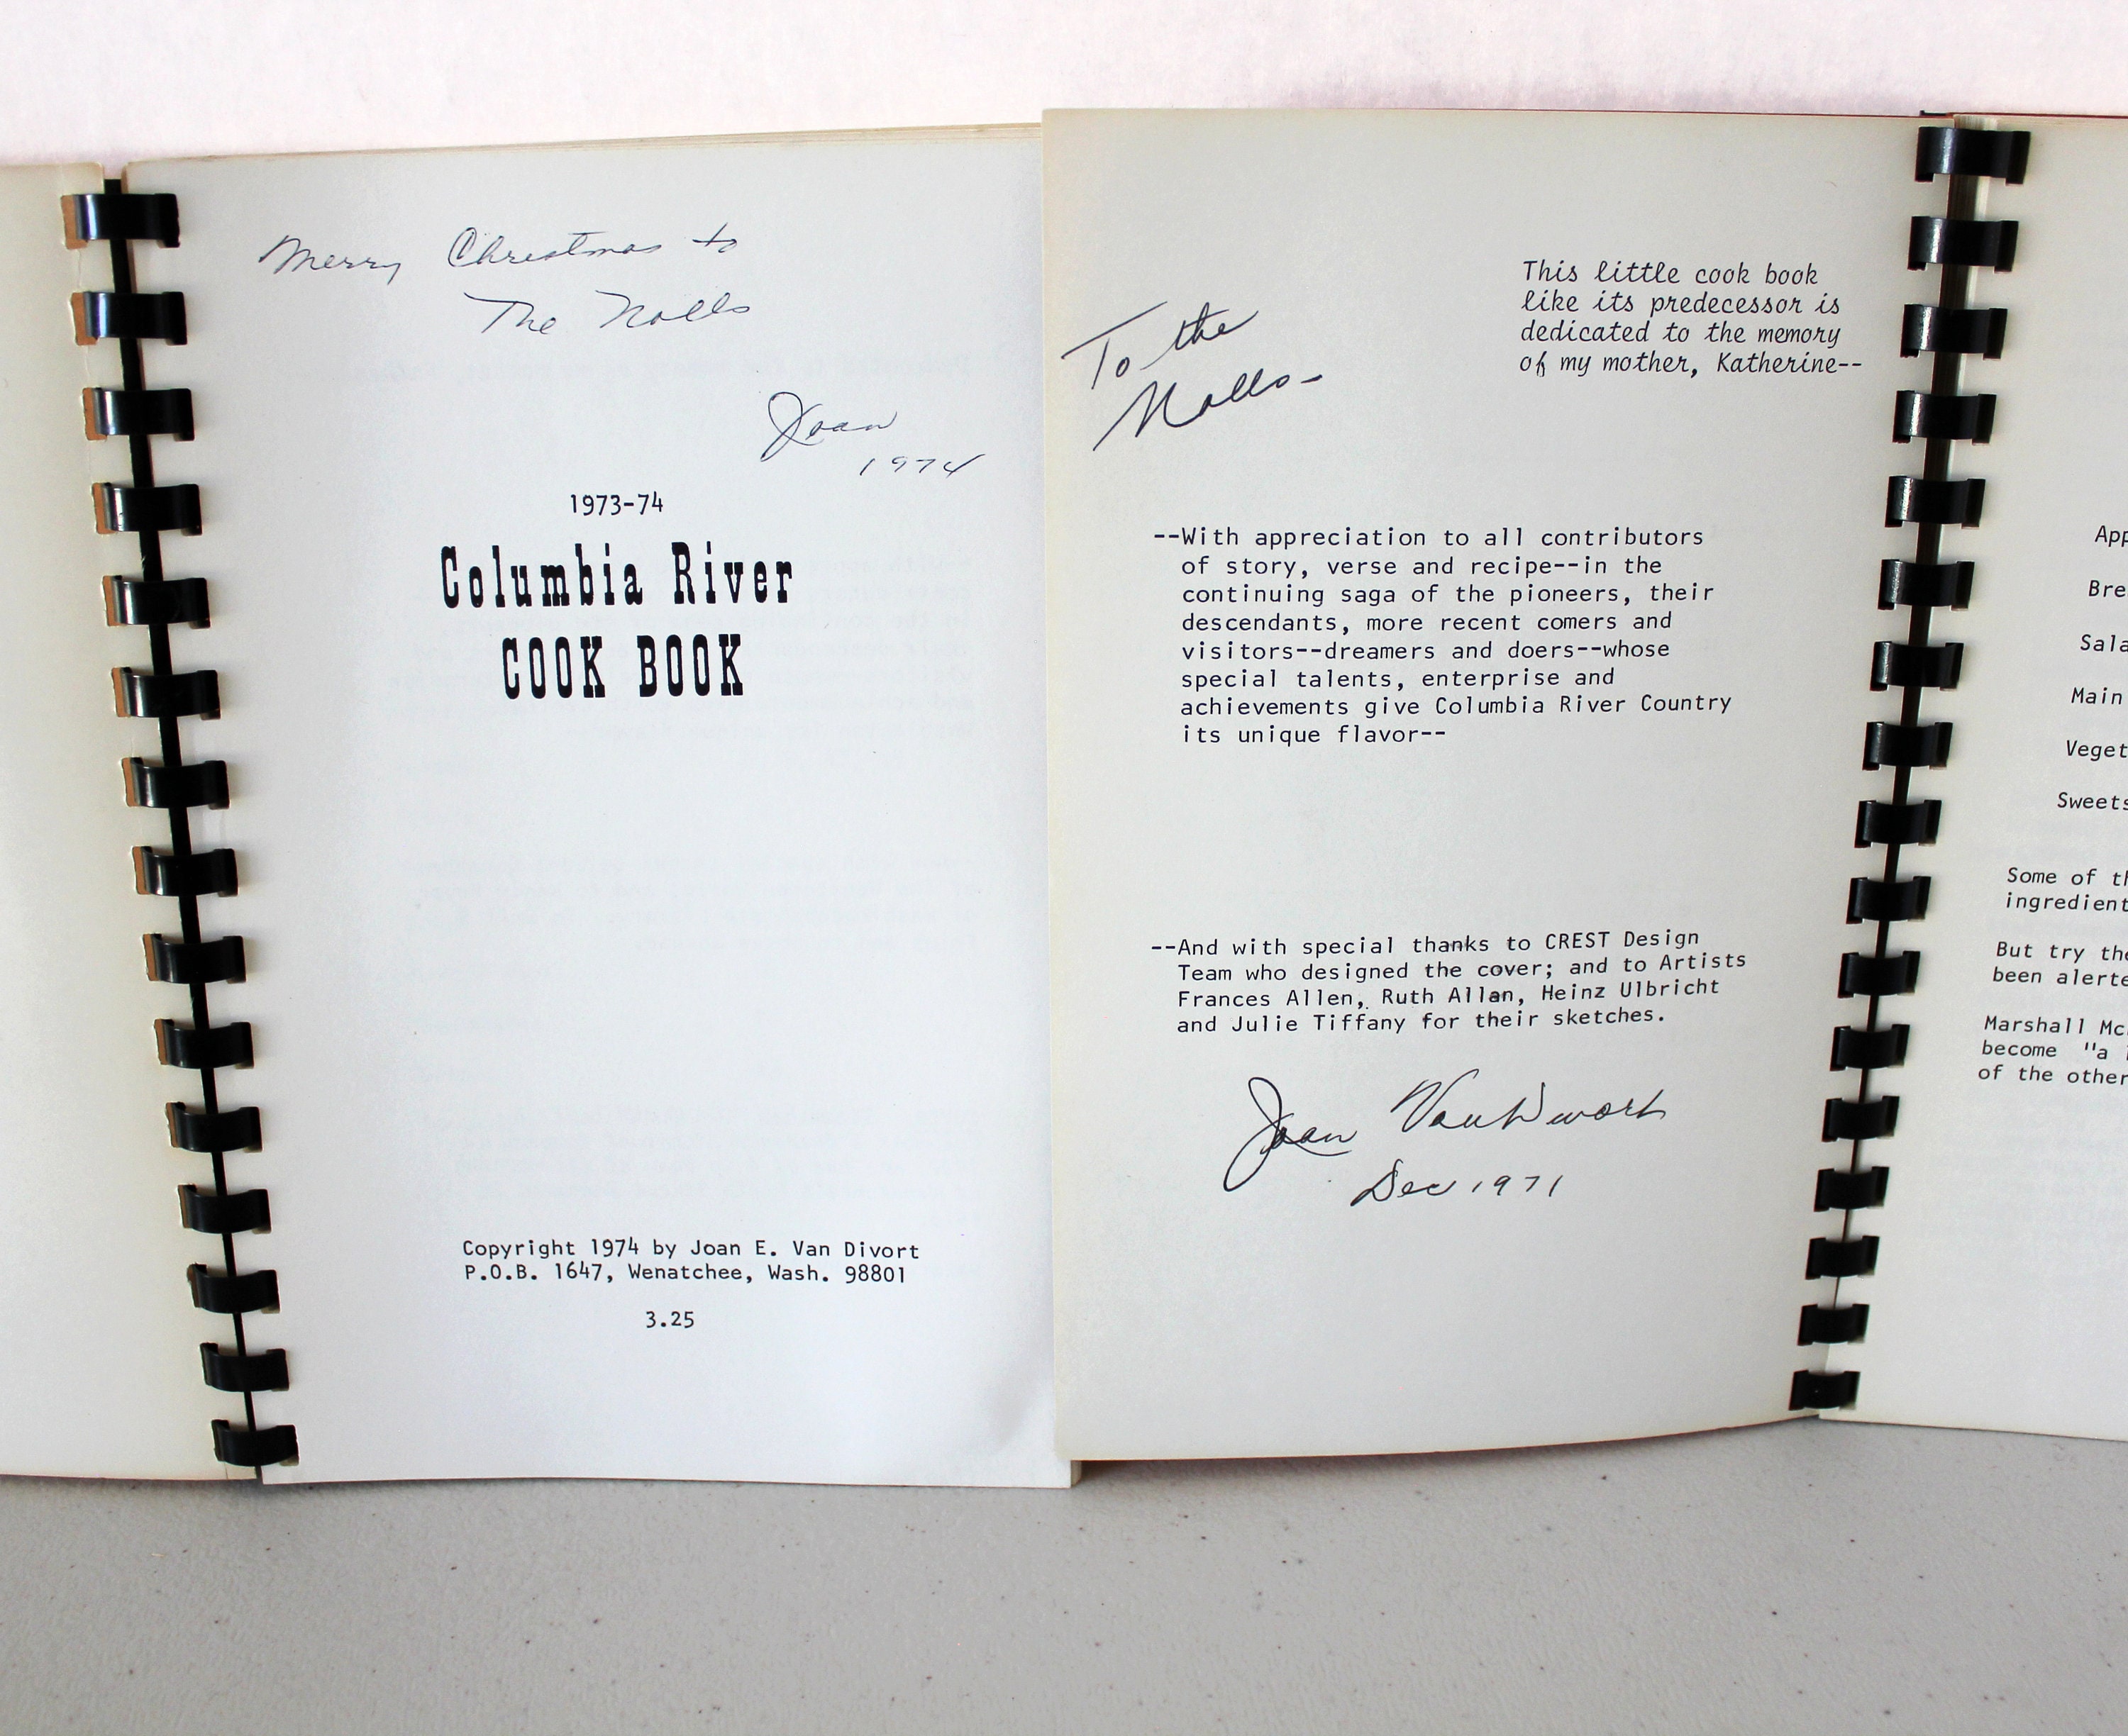 Merry Christmas to
The Nolls
Joan
1974
1973-74
Columbia River
COOK BOOK
Copyright 1974 by Joan E. Van Divort
P.O.B. 1647, Wenatchee, Wash. 98801
3.25
This little cook book
like its predecessor is
dedicated to the memory
of my mother, Katherine--
To the
Nolls-
--With appreciation to all contributors
of story, verse and recipe--in the
continuing saga of the pioneers, their
descendants, more recent comers and
visitors--dreamers and doers--whose
special talents, enterprise and
achievements give Columbia River Country
its unique flavor--
--And with special thanks to CREST Design
Team who designed the cover; and to Artists
Frances Allen, Ruth Allan, Heinz Ulbricht
and Julie Tiffany for their sketches.
Joan Van Divort
Dec 1971
App
Bre
Sala
Main
Veget
Sweets
Some of th
ingredient
But try the
been alerte
Marshall Mc
become "a
of the other